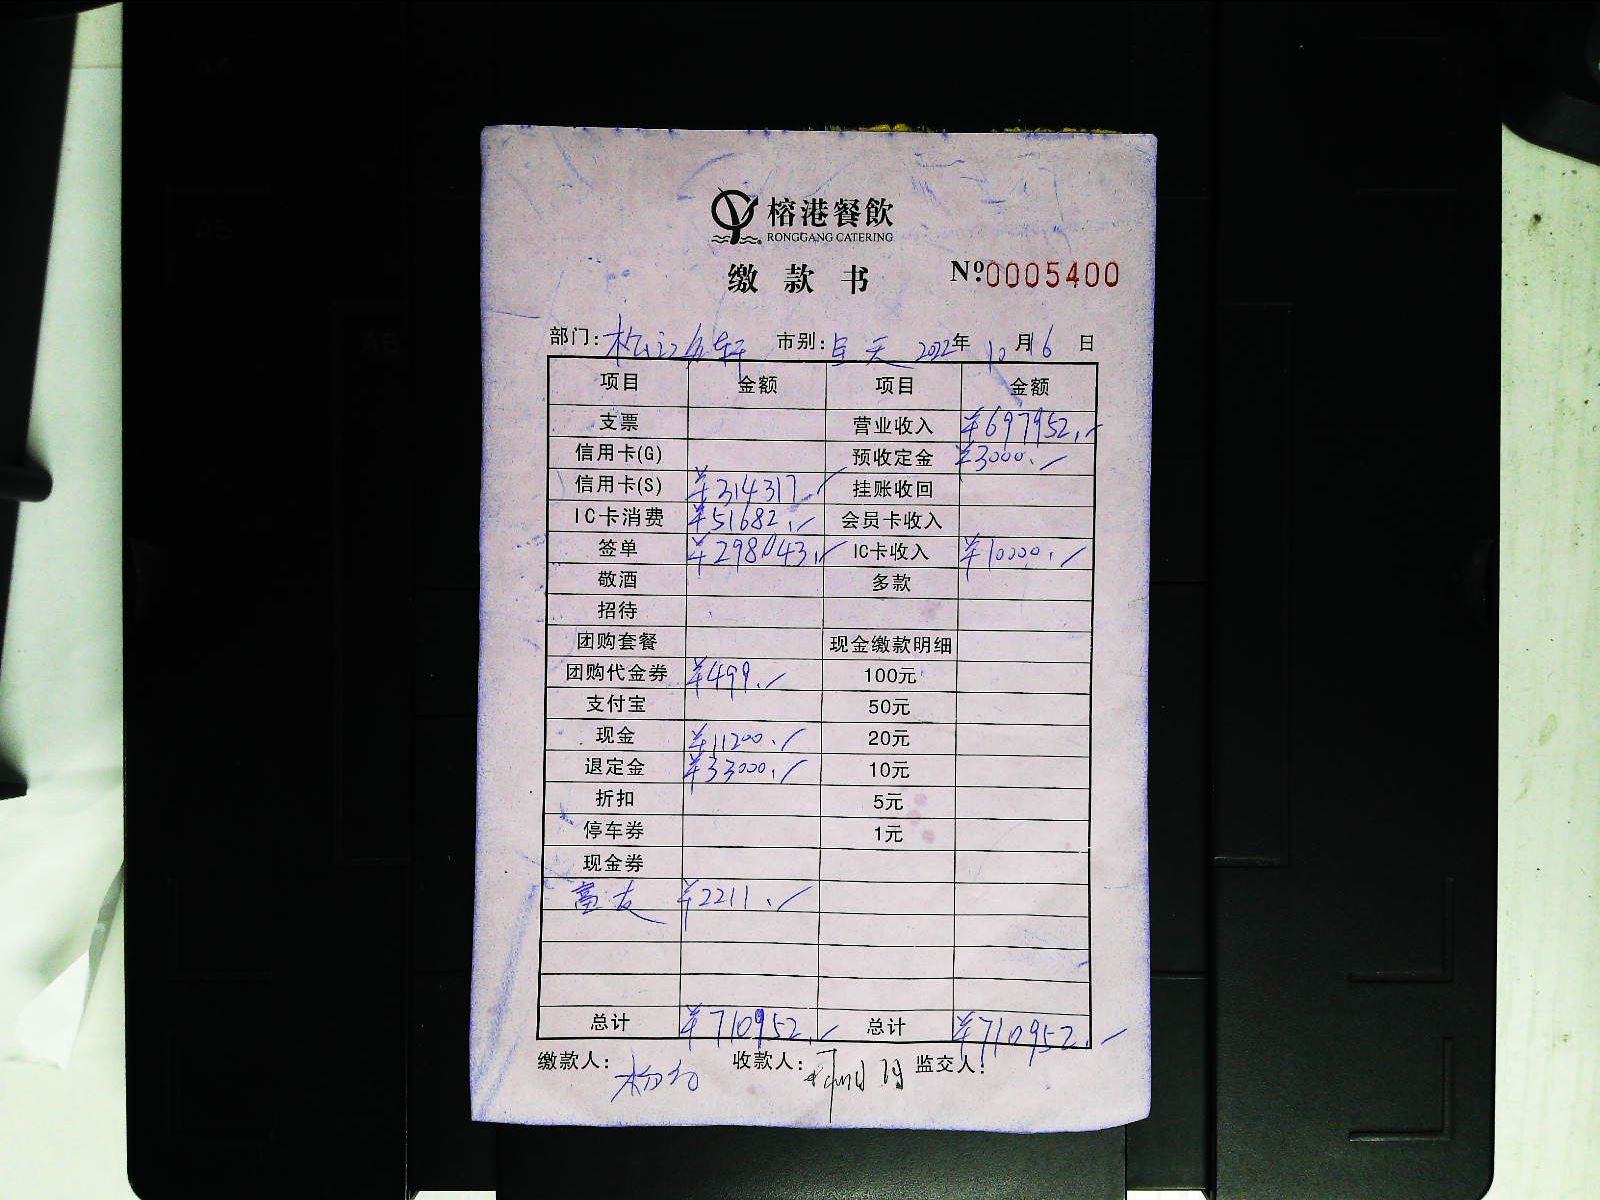 榕港餐飲
RONGGANG CATERING
缴款书 Nº0005400
部门: 松江 轩 市别: 全天 2022年 10月16日
项目 金额 项目 金额
支票 营业收入 ¥697952.
信用卡(G) 预收定金 ¥3000.
信用卡(S) ¥314317. 挂账收回
IC卡消费 ¥51682. 会员卡收入
签单 ¥298043. IC卡收入 ¥10000.
敬酒 多款
招待
团购套餐 现金缴款明细
团购代金券 ¥499. 100元
支付宝 50元
现金 ¥11200. 20元
退定金 ¥33000. 10元
折扣 5元
停车券 1元
现金券
¥2211.
总计 ¥710952. 总计 ¥710952.
缴款人: 收款人: 监交人: